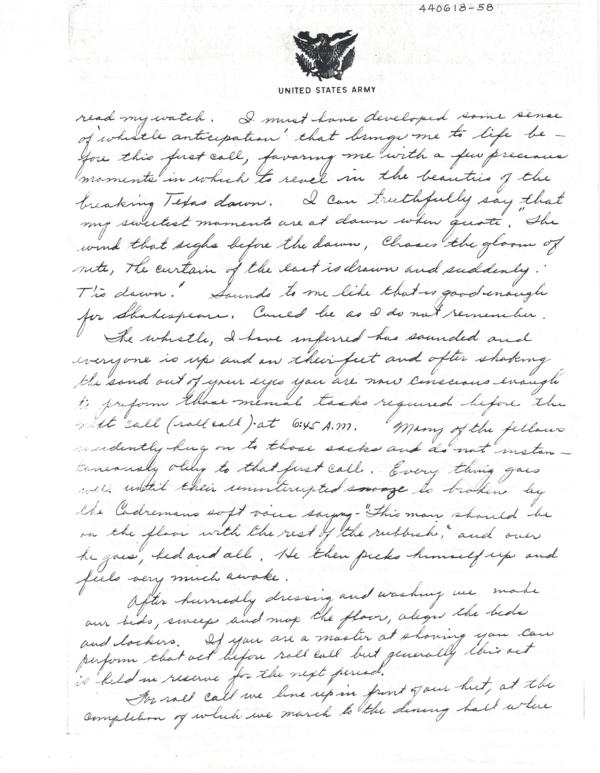 440618-58
UNITED STATES ARMY
read my watch. I must have developed some sense
of 'whistle anticipation' that brings me to life be-
fore this first call, favoring me with a few precious
moments in which to revel in the beauties of the
breaking Texas dawn. I can truthfully say that
my sweetest moments are at dawn when quote, "The
wind that sighs before the dawn, Chases the gloom of
nite, The curtain of the east is drawn and suddenly:
T'is dawn." Sounds to me like that is good enough
for Shakespeare. Could be as I do not remember.
The whistle, I have inferred has sounded and
everyone is up and on their feet and after shaking
the sand out of your eyes you are now conscious enough
to preform those menial tasks required before the
next call (roll call) at 6:45 A.M. Many of the fellows
evidently hug on to those sacks and do not instan-
taneously obey to that first call. Every thing goes
well until their uninterupted snooze is broken by
the Cadremans soft voice saying - "This man should be
on the floor with the rest of the rubbish," and over
he goes, bed and all. He then picks himself up and
feels very much awake.
After hurriedly dressing and washing we make
our beds, sweep and mop the floor, align the beds
and lockers. If you are a master at shaving you can
perform that act before roll call but generally this act
is held in reserve for the next period.
For roll call we line up in front of our hut, at the
completion of which we march to the dining hall where